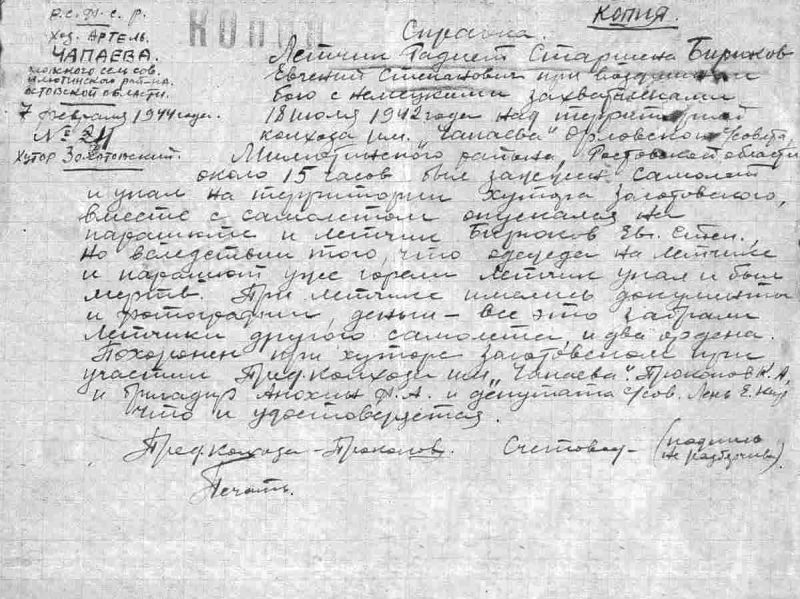 Р.С.Ф.С.Р.
Хоз. Артель.
ЧАПАЕВА.
сельсов.
района.
области.
7 февраля 1944 года.
№
Хутор
КОПИЯ
КОПИЯ.
Справка.
Летчик Радист Старшина Бирюков
Евгений Степанович при воздушном
бою с немецкими захватчиками
18 июля 1942 года над территорией
колхоза им. "Чапаева" Орловского с/совета,
Милютинского района, Ростовской области
около 15 часов был самолет
и упал на территории хутора Заготовского,
вместе с самолетом опускался на
парашюте и летчик Бирюков Евг. Степ.,
но вследствии того, что одежда на летчике
и парашют уже горели летчик упал и был
мертв. При летчике имелись документы
и фотографии, деньги – все это забрали
летчики другого самолета, и два ордена.
Похоронен при хуторе Заготовском при
участии Пред. колхоза им. "Чапаева" К. А.
и бригадир Анохин Ф. А. и депутата с/сов. Лень Е.
что и удостоверяется.
Пред. колхоза – Счетовод – (подпись
не разборчива)
Печать.